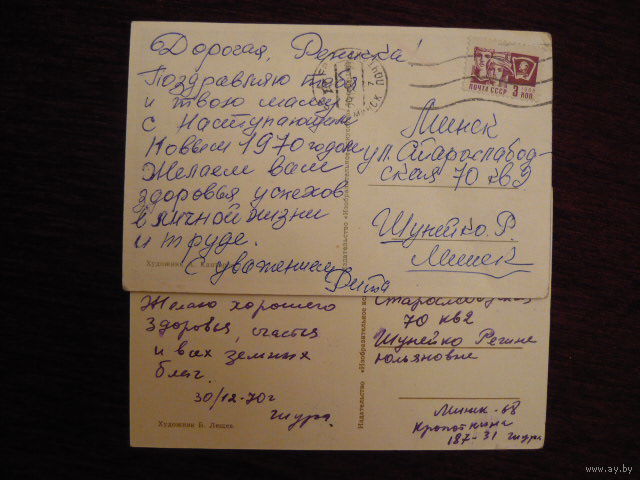 Дорогая, Ренička!
Поздравляю тебя
и твою маму
с Наступающим
Новым 1970 годом
Желаем вам
здоровья успехов
в личной жизни
и труде.
С уважением
Рита
Художник
ПОЧТА СССР 3 КОП
МИНСК
Минск
ул. Старослабод-
ская 70 кв 3
Шунейко. Р.
Минск
Издательство «Изобразительное
Желаю хорошего
здоровья, счастья
и всех земных
благ.
30/12-70г
Художник Б. Лещев
Издательство «Изобразительное
70 кв2
Шунейко Регине
Юльяновне
Минск-68
Кропоткина
187-31
www.ay.by